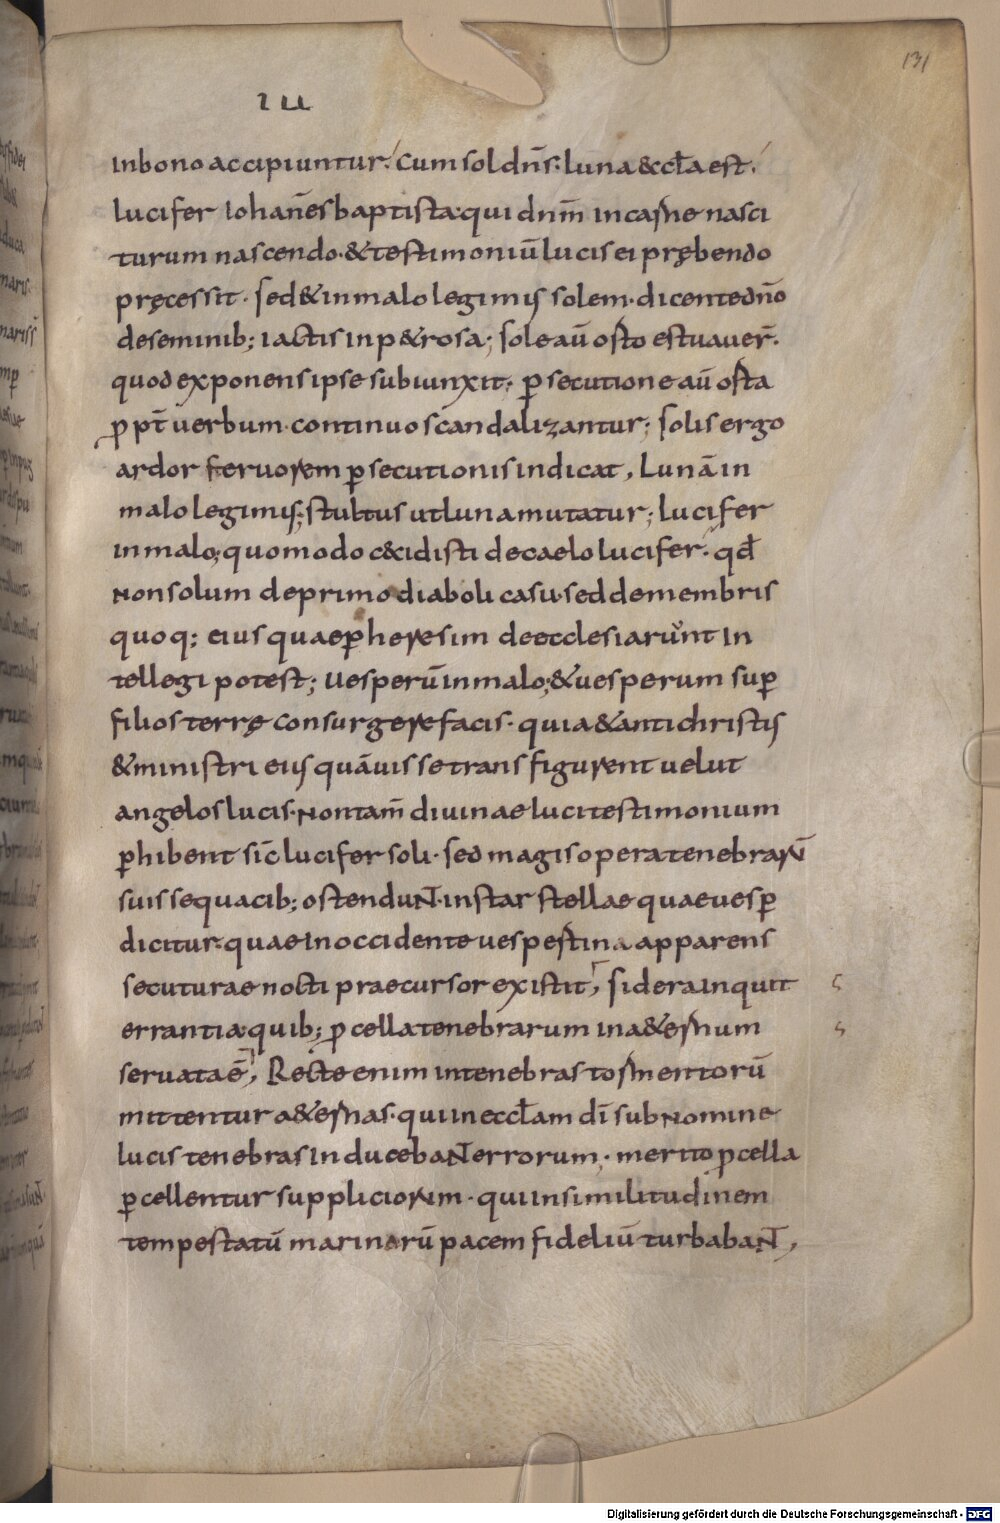 131
ıu
Inbono accipiuntur. Cum sol dn̄s. luna & eccl̄a est.
lucifer Iohan̄es baptista. qui dnm̄ in carne nasci
turum nascendo. & testimoniū lucis ei prębendo
pręcessit. sed & in malo legimus solem. dicente dn̄o
de seminib; iactis in p&rosa; sole aū orto estuauer̄.
quod exponens ipse subiunxit. ꝑsecutione aū orta
ꝓpt̄ uerbum. continuo scandalizantur; solis ergo
ardor feruorem ꝑsecutionis indicat, Lunā in
malo legimus; stultus ut luna mutatur; lucifer
in malo; quomodo cecidisti de caelo lucifer. qd̄
Non solum de primo diaboli casu. sed de membris
quoq; eius quae ꝑ heresim de ecclesia runt In
tellegi potest; Uesperū in malo; & uesperum suꝑ
filios terrę consurgere facis. quia & antichristus
& ministri eius quāuis se transfigurent uelut
angelos lucis. Non tam̄ diuinae luci testimonium
ꝑhibent sīc lucifer soli. sed magis opera tenebrarū
suis sequacib; ostenduNT. instar stellae quae uesꝑ
dicitur. quae In occidente uespestina apparens
secuturae nocti praecursor existit, sidera Inquit
errantia. quib; ꝓcella tenebrarum in a&ernum
seruata ē, Recte enim in tenebras tormentorū
mittentur a&ernas. qui in eccl̄am dī sub Nomine
lucis tenebras InducebaNT errorum. merito ꝓcella
ꝑcellentur suppliciorum. qui in similitudinem
tempestatū marinarū pacem fideliū turbabaNT,
Digitalisierung gefördert durch die Deutsche Forschungsgemeinschaft - DFG